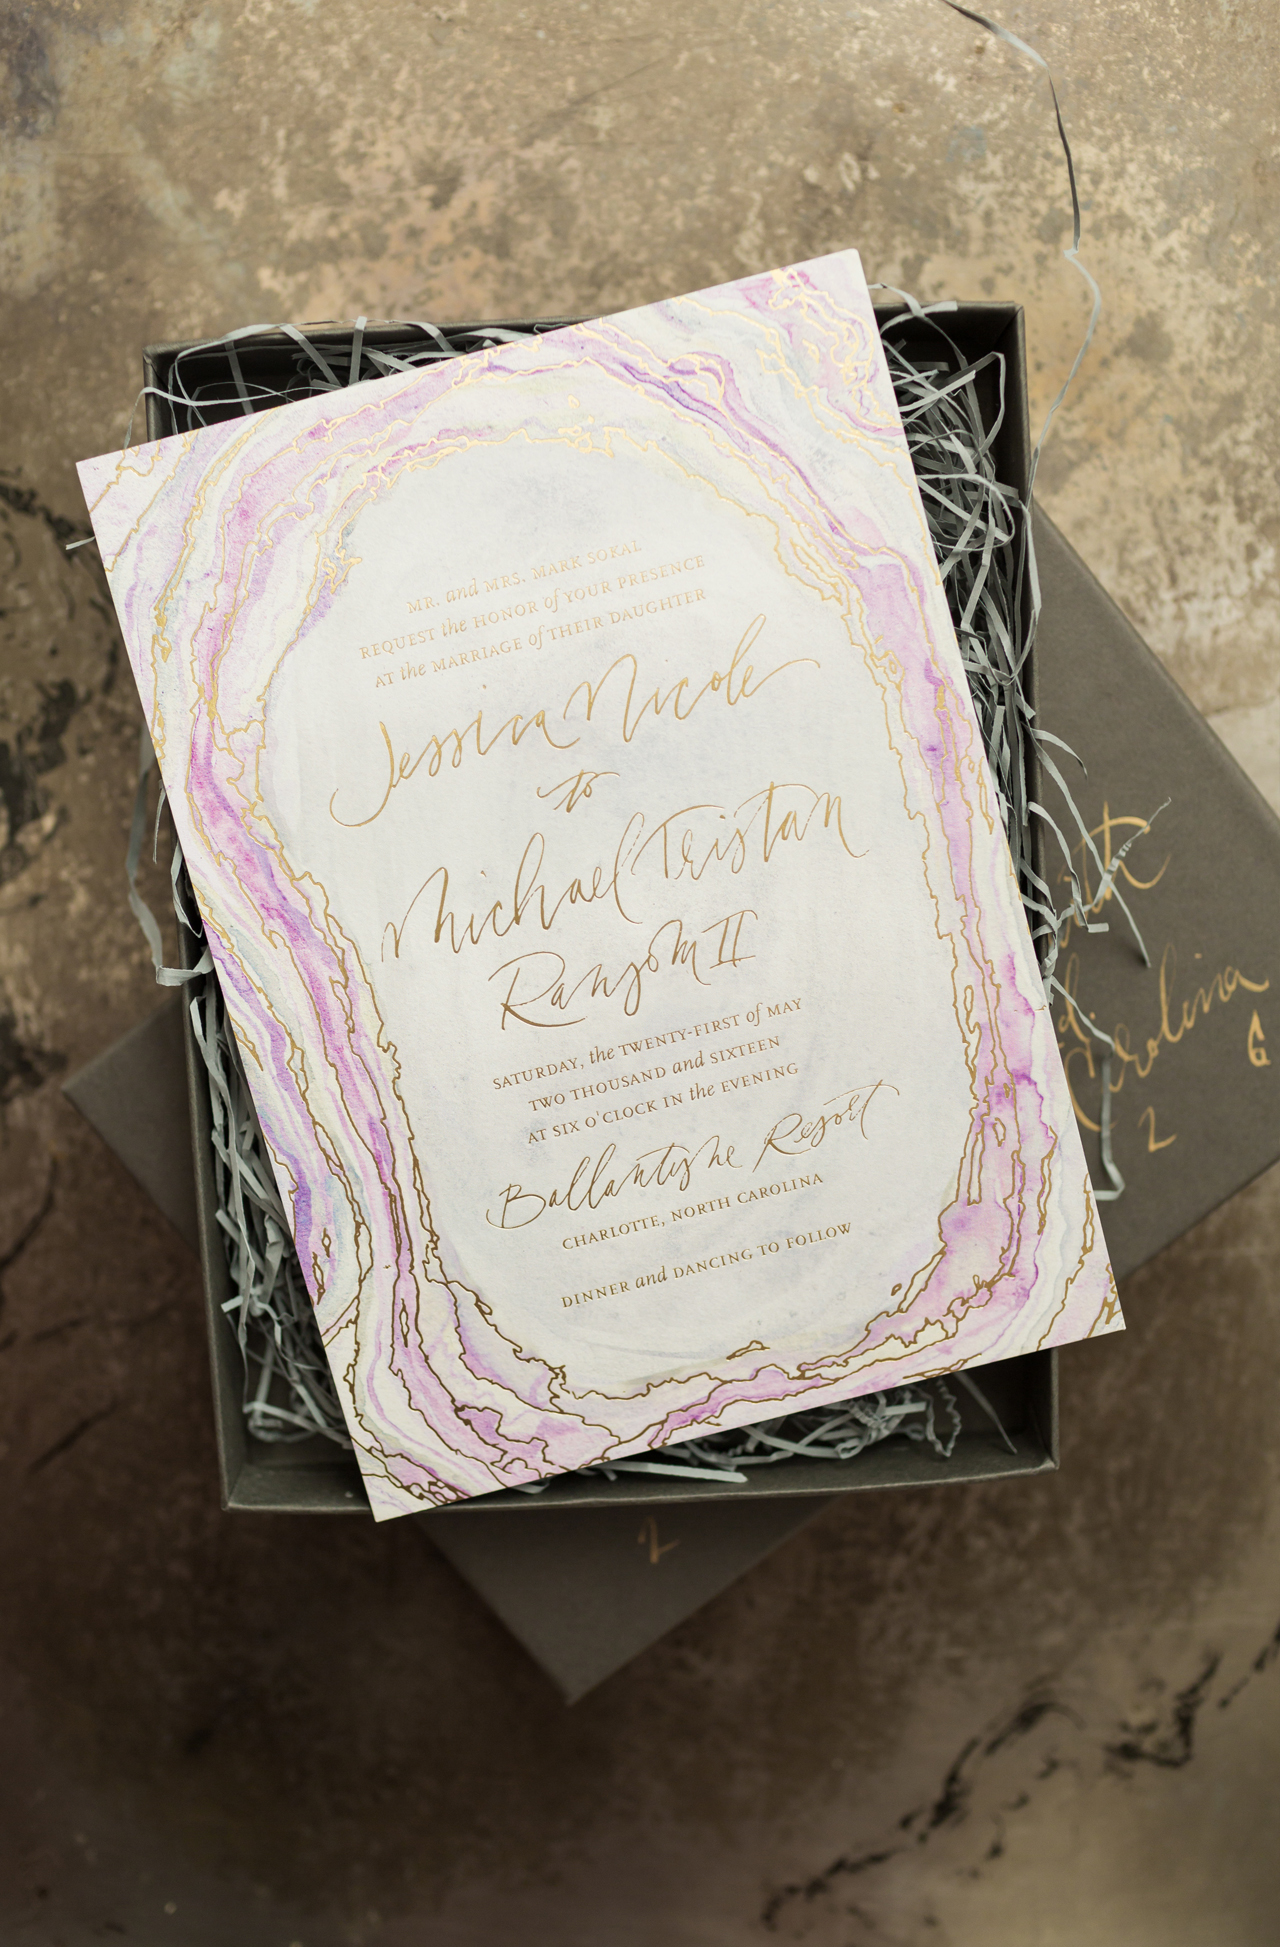 MR. and MRS. MARK SOKAL
REQUEST the HONOR of YOUR PRESENCE
AT the MARRIAGE of THEIR DAUGHTER
Jessica Nicole
to
Michael Tristan
Ransom II
SATURDAY, the TWENTY-FIRST of MAY
TWO THOUSAND and SIXTEEN
AT SIX O'CLOCK IN the EVENING
Ballantyne Resort
CHARLOTTE, NORTH CAROLINA
DINNER and DANCING TO FOLLOW
Carolina
2
6
2